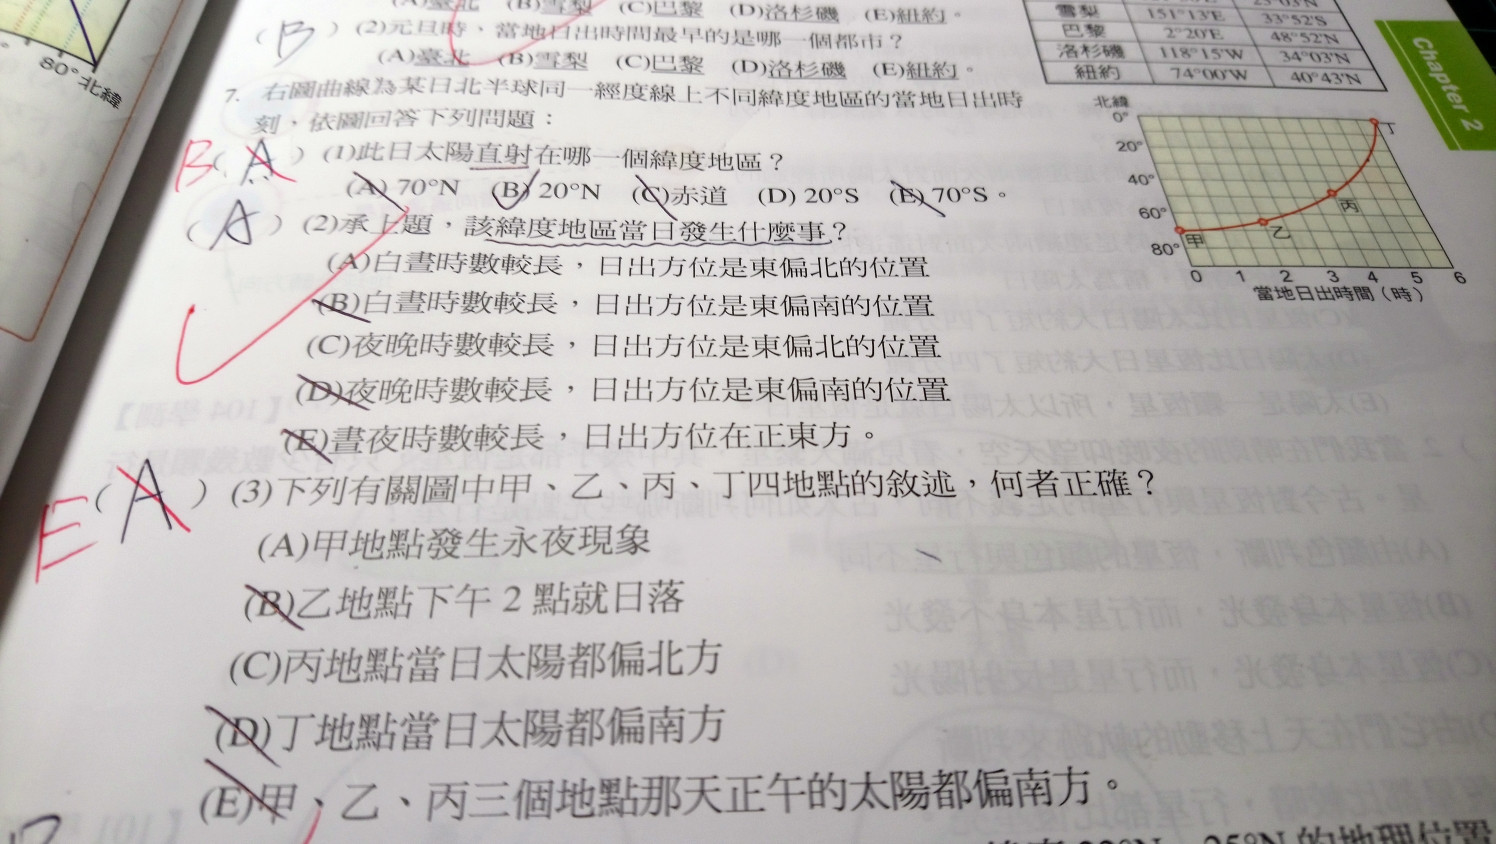 (A)臺北 (B)雪梨 (C)巴黎 (D)洛杉磯 (E)紐約。
( B ) (2)元旦時、當地日出時間最早的是哪一個都市？
(A)臺北 (B)雪梨 (C)巴黎 (D)洛杉磯 (E)紐約。
雪梨 151°13'E 33°52'S
巴黎 2°20'E 48°52'N
洛杉磯 118°15'W 34°03'N
紐約 74°00'W 40°43'N
Chapter 2
80°北緯
7. 右圖曲線為某日北半球同一經度線上不同緯度地區的當地日出時
刻，依圖回答下列問題：
B ( A ) (1)此日太陽直射在哪一個緯度地區？
(A) 70°N (B) 20°N (C)赤道 (D) 20°S (E) 70°S。
( A ) (2)承上題，該緯度地區當日發生什麼事？
(A)白晝時數較長，日出方位是東偏北的位置
(B)白晝時數較長，日出方位是東偏南的位置
(C)夜晚時數較長，日出方位是東偏北的位置
(D)夜晚時數較長，日出方位是東偏南的位置
(E)晝夜時數較長，日出方位在正東方。
E ( A ) (3)下列有關圖中甲、乙、丙、丁四地點的敘述，何者正確？
(A)甲地點發生永夜現象
(B)乙地點下午 2 點就日落
(C)丙地點當日太陽都偏北方
(D)丁地點當日太陽都偏南方
(E)甲、乙、丙三個地點那天正午的太陽都偏南方。
北緯
0°
20°
40°
60°
80°
甲 乙 丙 丁
0 1 2 3 4 5 6
當地日出時間（時）
的地理位置